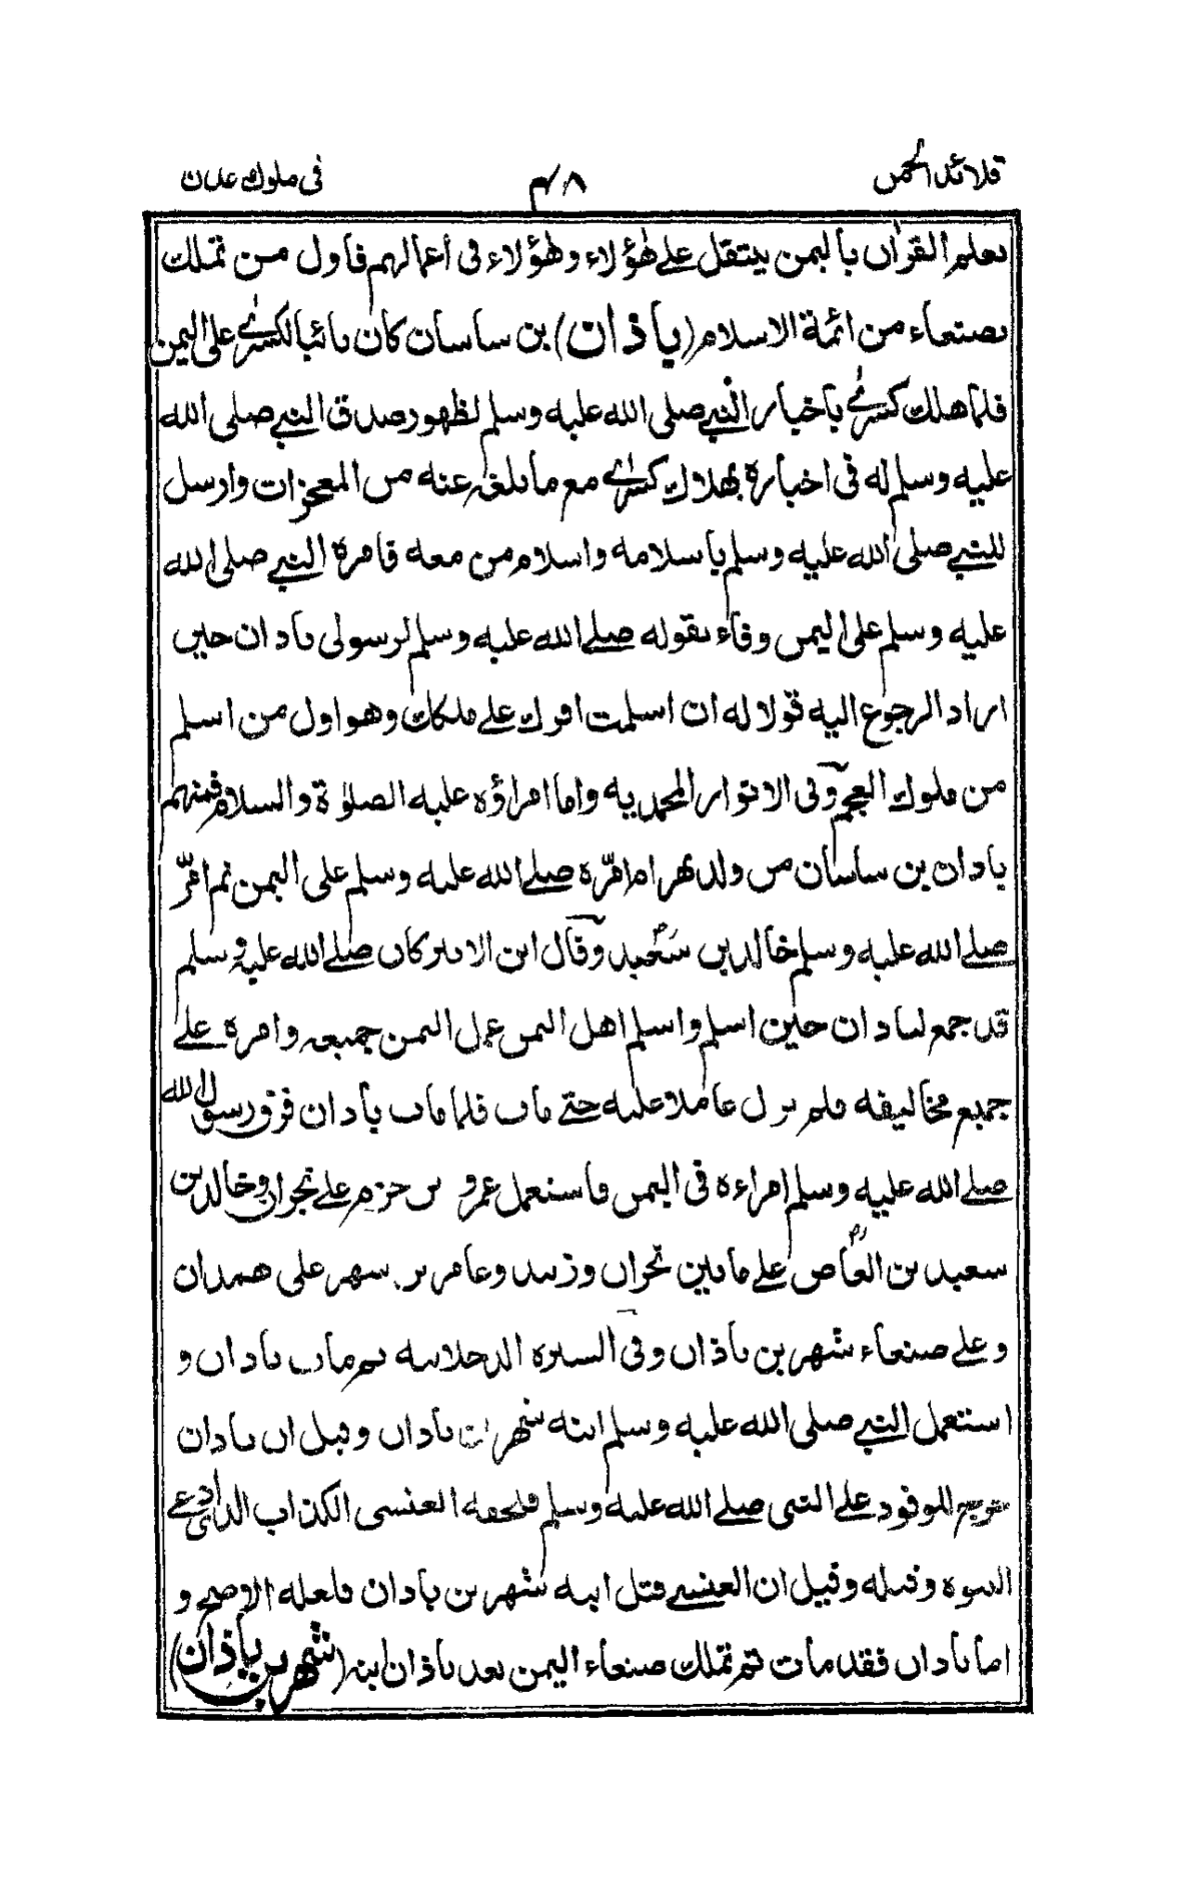 قلائد الجمن ٤٨ فى ملوك عدن
يعلم القرآن باليمن ينتقل على هٰؤلاء وهٰؤلاء فى أعمالهم فأول من تملك
بصنعاء من ائمة الاسلام (باذان) بن ساسان كان نائبا لكسرى على اليمن
فلما هلك كسرى باخبار النبي صلى الله عليه وسلم لظهور صدق النبي صلى الله
عليه وسلم له فى اخباره بهلاك كسرى مع ما بلغه عنه من المعجزات وارسل
للنبي صلى الله عليه وسلم باسلامه واسلام من معه فامره النبي صلى الله
عليه وسلم على اليمن وفاء بقوله صلى الله عليه وسلم لرسولى باذان حين
اراد الرجوع اليه قولا له ان اسلمت اقرك على ملكك وهو اول من اسلم
من ملوك العجم وفى الانوار المحمديه واما امراؤه عليه الصلوٰة والسلام فمنهم
باذان بن ساسان من ولد بهرام امّره صلى الله عليه وسلم على اليمن ثم امّر
صلى الله عليه وسلم خالد بن سعيد وقال ابن الاثير كان صلى الله عليه وسلم
قد جمع لباذان حين اسلم واسلم اهل اليمن عمل اليمن جميعه وامره على
جميع مخاليفه فلم يزل عاملا عليه حتى مات فلما مات باذان فرق رسول الله
صلى الله عليه وسلم امراءه فى اليمن فاستعمل عمرو بن حزم على نجران وخالد بن
سعيد بن العاص على ما بين نجران وزبيد وعامر بن شهر على همدان
وعلى صنعاء شهر بن باذان وفى السيرة الدحلانيه ثم مات باذان و
استعمل النبي صلى الله عليه وسلم ابنه شهر بن باذان وقيل ان باذان
خرج للوفود على النبى صلى الله عليه وسلم فلحقه العنسى الكذاب الذى ادعى
النبوه وقتله وقيل ان العنسى قتل ابنه شهر بن باذان فلعله الاصح و
اما باذان فقد مات ثم تملك صنعاء اليمن بعد باذان ابنه (شهر بن باذان)